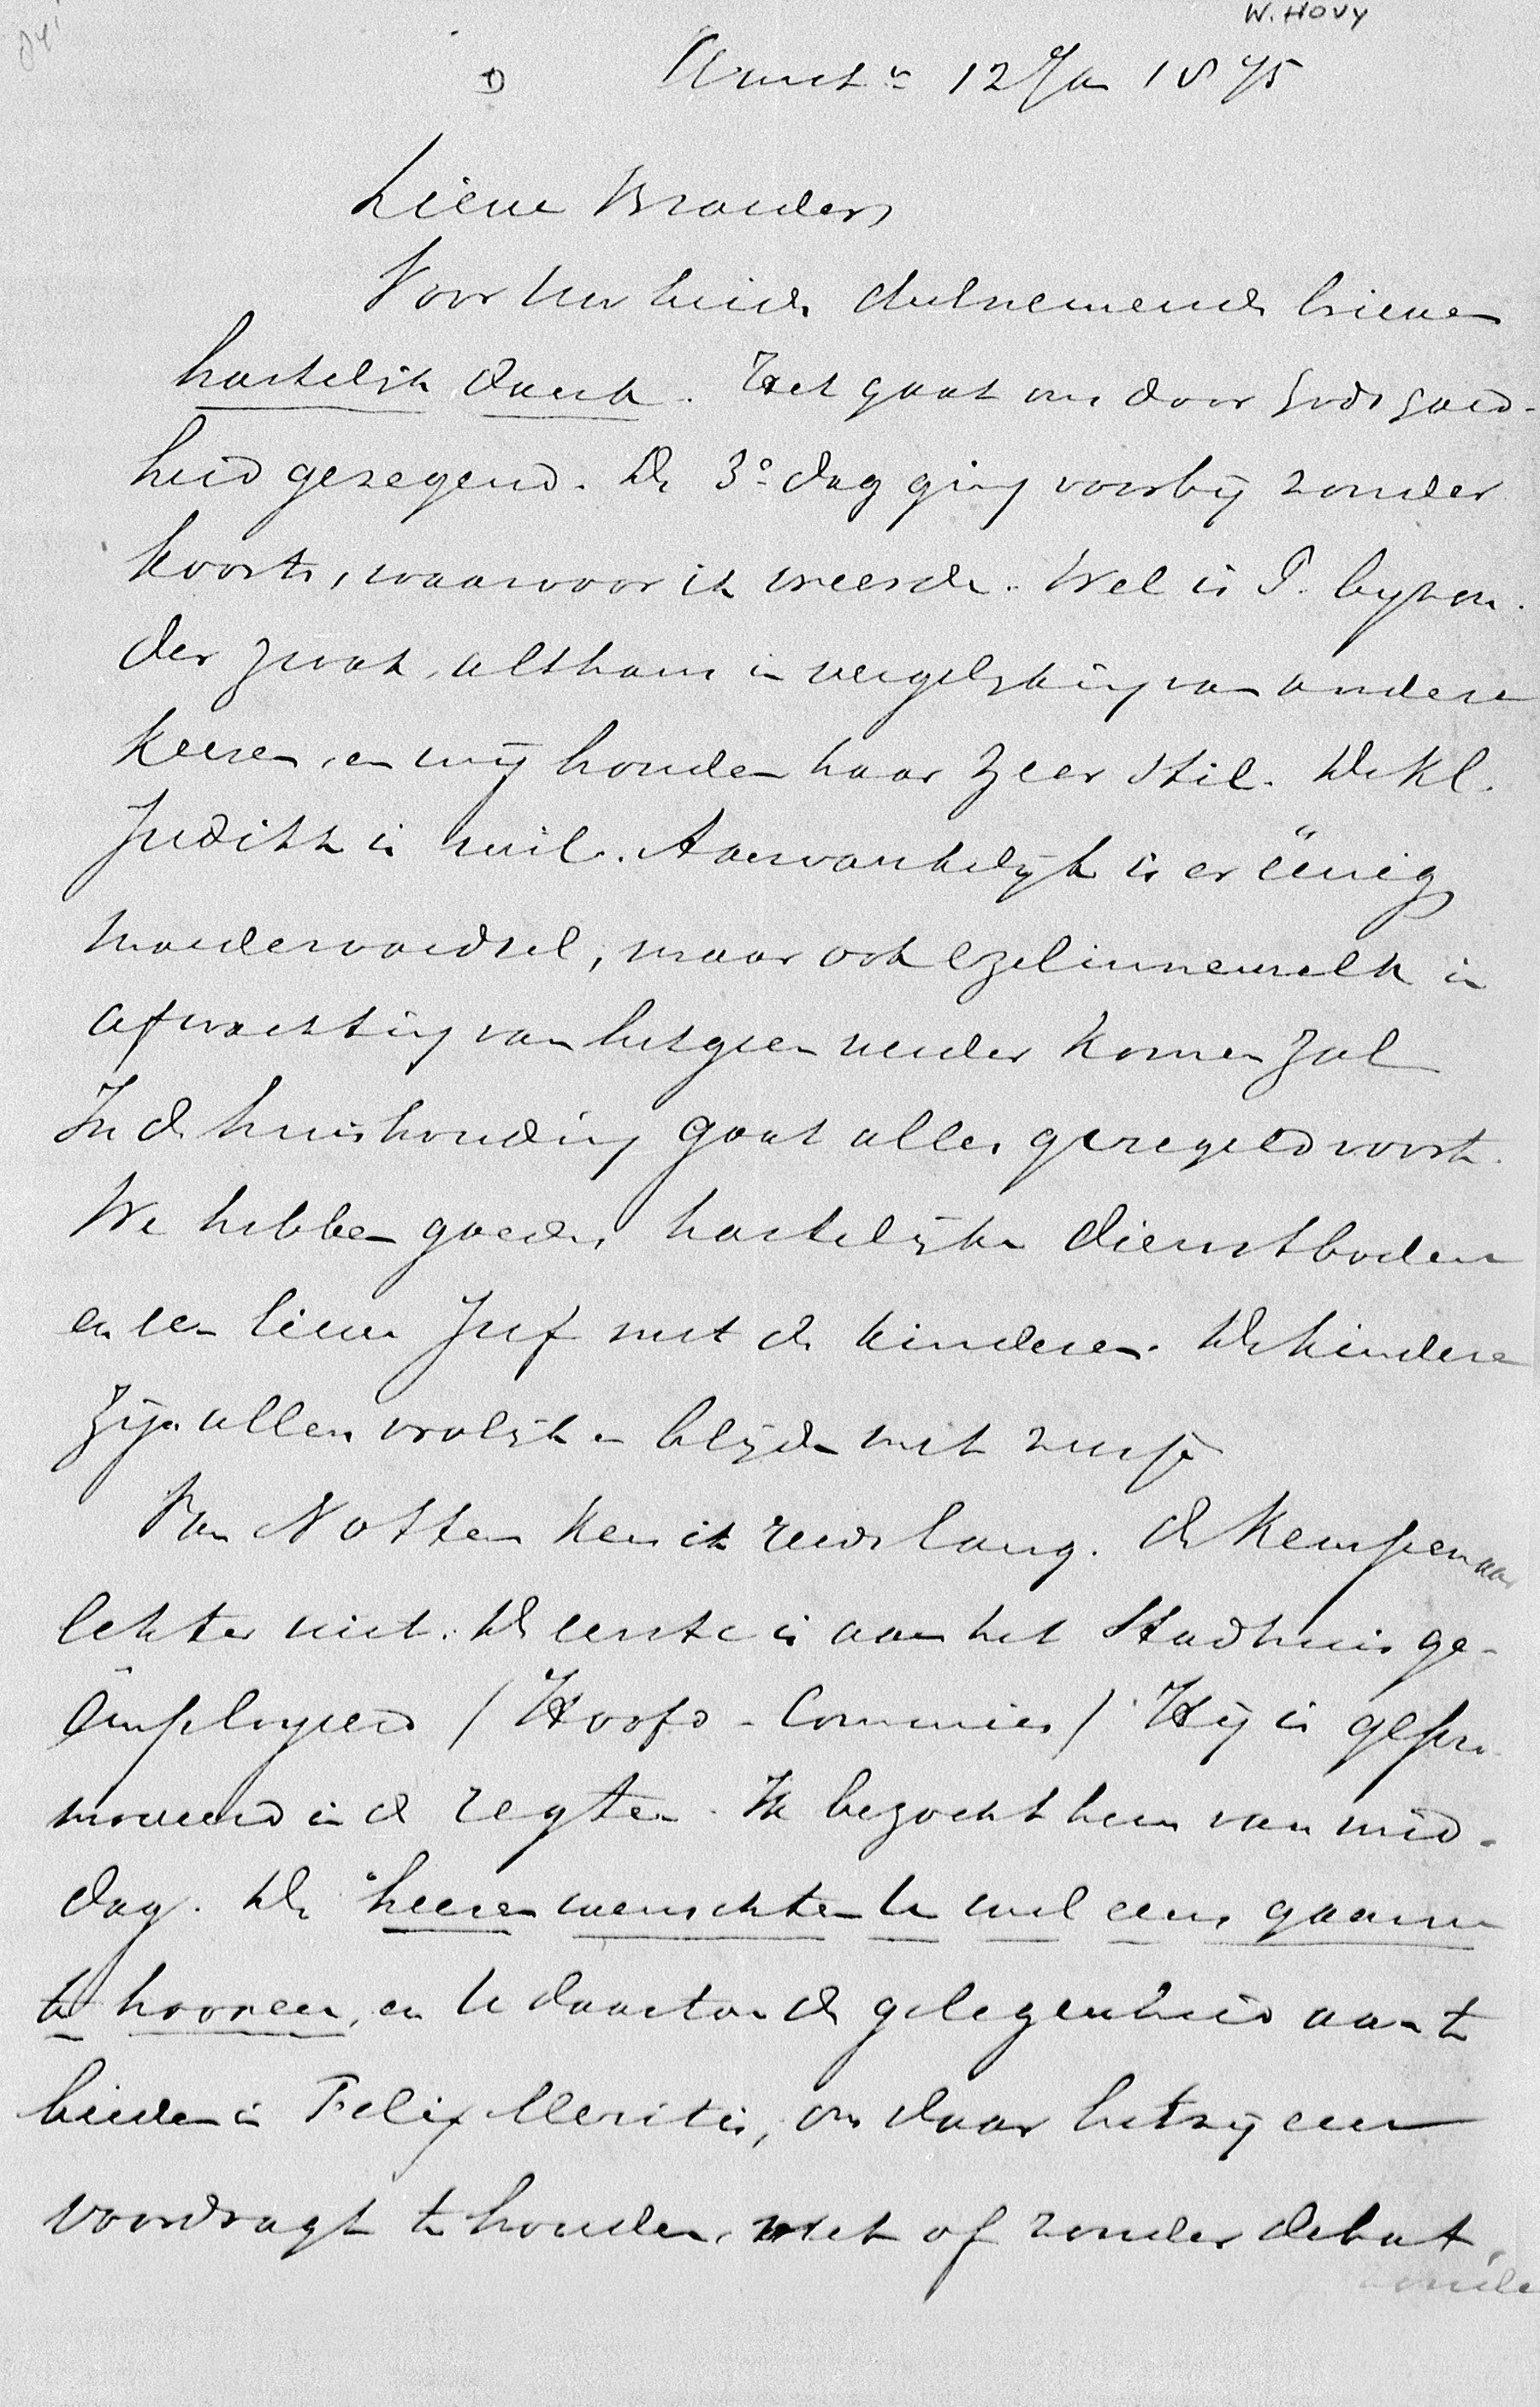 W. HOVY
Amstm 12 Jan 1875
Lieve Broeder,
Voor Uw beide deelnemende brieven
hartelijk dank. Het gaat ons door Gods goed-
heid gezegend. De 3e dag ging voorbij zonder
koorts, waarvoor ik vreesde. Wel is P. byzon-
der zwak, althans in vergelijking van andere
keeren, en wij houden haar zeer stil. De kl.
Judith is wel. Aanvankelijk is er eenig
moedervoedsel, maar ook ezelinnemelk in
afwachting van hetgeen verder komen zal
In de huishouding gaat alles geregeld voort.
We hebben goede, hartelijke dienstboden
en een lieve Juf met de kinderen. De kinderen
zijn allen vrolijk en blijde met zusje
Van Notten ken ik reeds lang. de Kempenaar
echter niet. De eerste is aan het Stadhuis ge-
ëmployeerd / Hoofd-Commies / Hij is gepro-
moveerd in de regten. Ik bezocht hem van mid-
dag. De heeren wenschten U wel eens gaarne
te hooren, en U daartoe de gelegenheid aan te
bieden in Felix Meritis, om daar hetzij een
voordragt te houden, met of zonder debat,